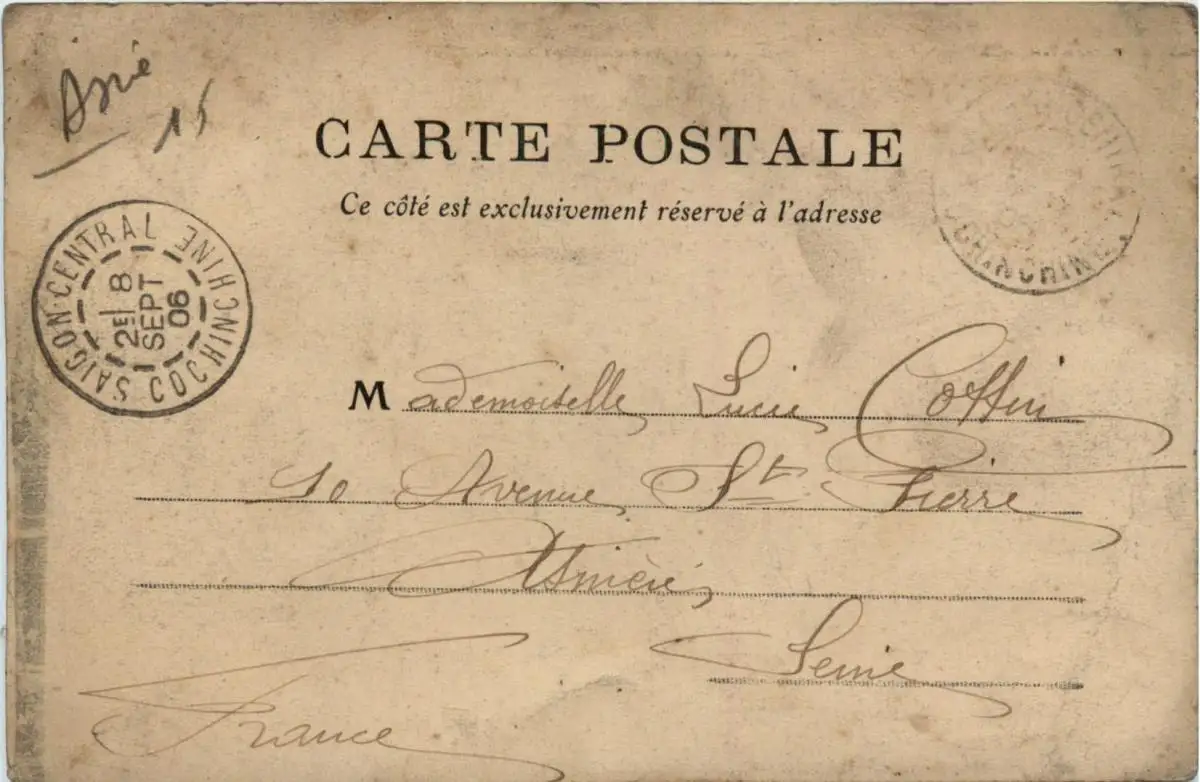 Asie
15
CARTE POSTALE
Ce côté est exclusivement réservé à l'adresse
SAIGON-CENTRAL COCHINCHINE
2E 8
SEPT
06
Mademoiselle Lucie Coffin
10 Avenue St Pierre
Asnières
Seine
France